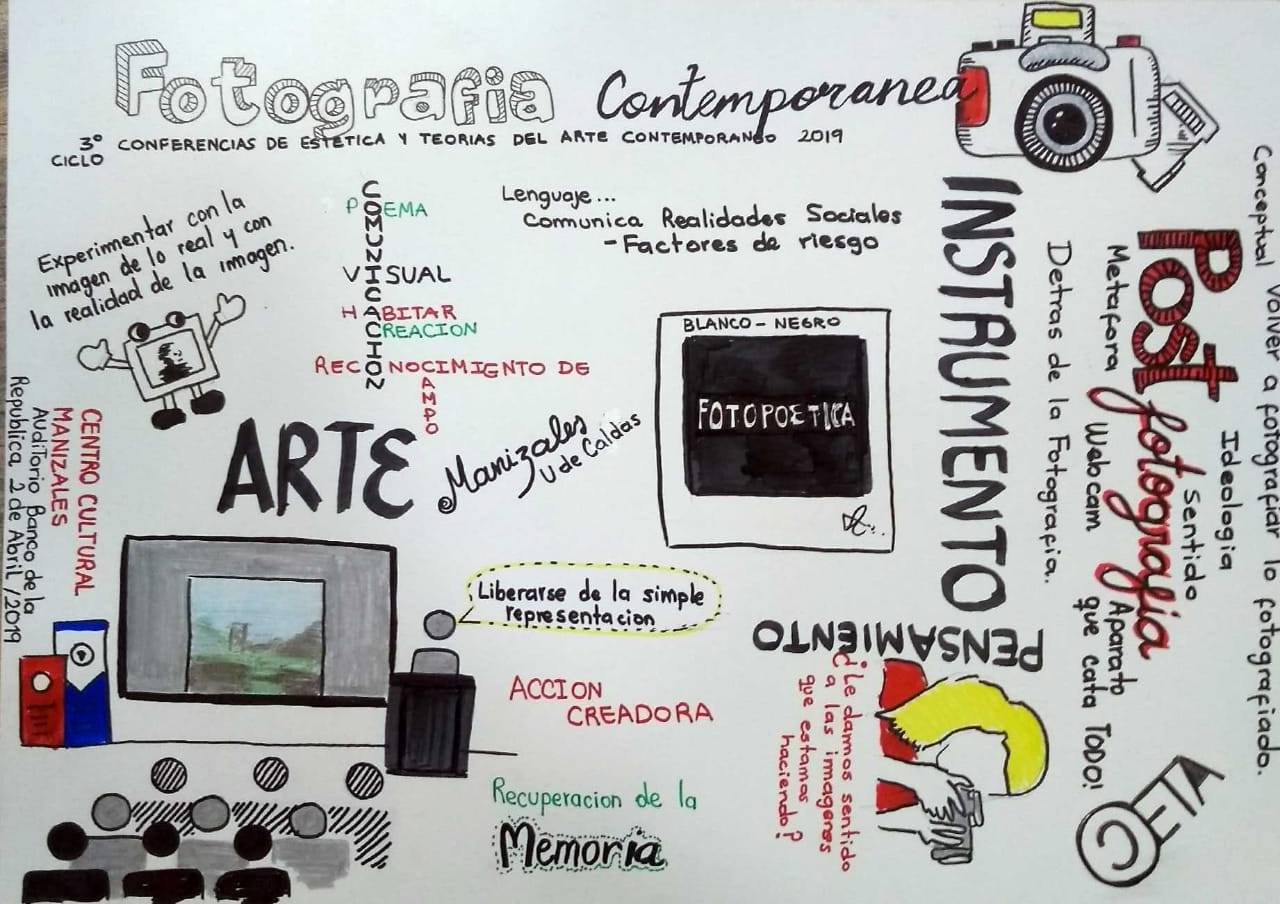 Fotografia Contemporanea
3° CICLO CONFERENCIAS DE ESTETICA Y TEORIAS DEL ARTE CONTEMPORANEO 2019
Experimentar con la
imagen de lo real y con
la realidad de la imagen.
COMUNICACHON
POEMA
VISUAL
HABITAR
CREACION
RECONOCIMIENTO DE
CAMPO
Lenguaje...
Comunica Realidades Sociales
- Factores de riesgo
BLANCO - NEGRO
FOTOPOETICA
ARTE
Manizales
U de Caldas
CENTRO CULTURAL
MANIZALES
Auditorio Banco de la
Republica 2 de Abril / 2019
Liberarse de la simple
representacion
ACCION
CREADORA
Recuperacion de la
Memoria
INSTRUMENTO
Detras de la Fotografia.
Post fotografia
Metafora
Webcam
Aparato
que cata TODO!
Ideologia
Sentido
Conceptual Volver a fotografiar lo fotografiado.
PENSAMIENTO
¿Le damos sentido
a las imagenes
que estamos
haciendo?
CETA